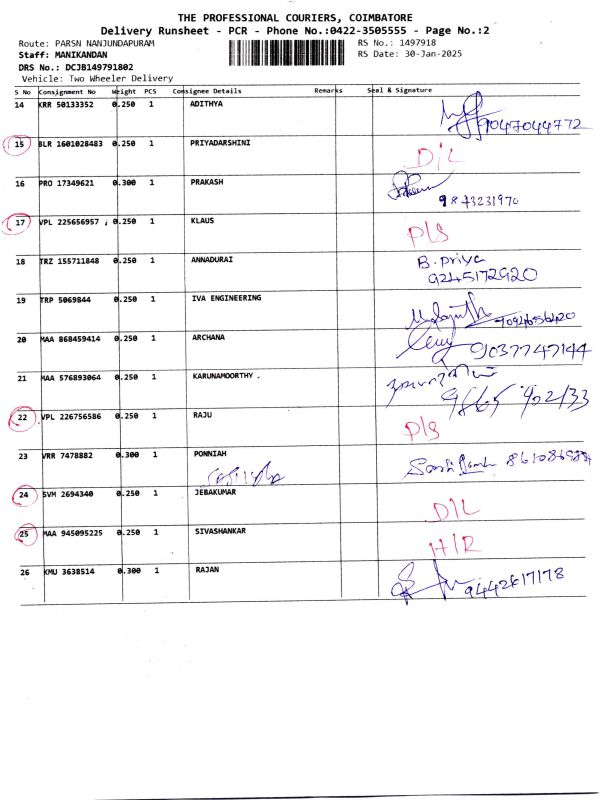 THE PROFESSIONAL COURIERS, COIMBATORE
Delivery Runsheet - PCR - Phone No.:0422-3505555 - Page No.:2
Route: PARSN NANJUNDAPURAM RS No.: 1497918
Staff: MANIKANDAN RS Date: 30-Jan-2025
DRS No.: DCJB149791802
Vehicle: Two Wheeler Delivery
S No Consignment No Weight PCS Consignee Details Remarks Seal & Signature
14 KRR 50133352 0.250 1 ADITHYA
9047044772
15 BLR 1601028483 0.250 1 PRIYADARSHINI D/L
16 PRO 17349621 0.300 1 PRAKASH
9843231970
17 VPL 225656957 0.250 1 KLAUS P/S
18 TRZ 155711848 0.250 1 ANNADURAI B.priya
9245172920
19 TRP 5069844 0.250 1 IVA ENGINEERING
9094656420
20 MAA 868459414 0.250 1 ARCHANA 9037747144
21 MAA 576893064 0.250 1 KARUNAMOORTHY
22 VPL 226756586 0.250 1 RAJU P/S
23 VRR 7478882 0.300 1 PONNIAH
24 SVM 2694340 0.250 1 JEBAKUMAR D/L
25 MAA 945095225 0.250 1 SIVASHANKAR H/R
26 KMU 3638514 0.300 1 RAJAN 9442617178